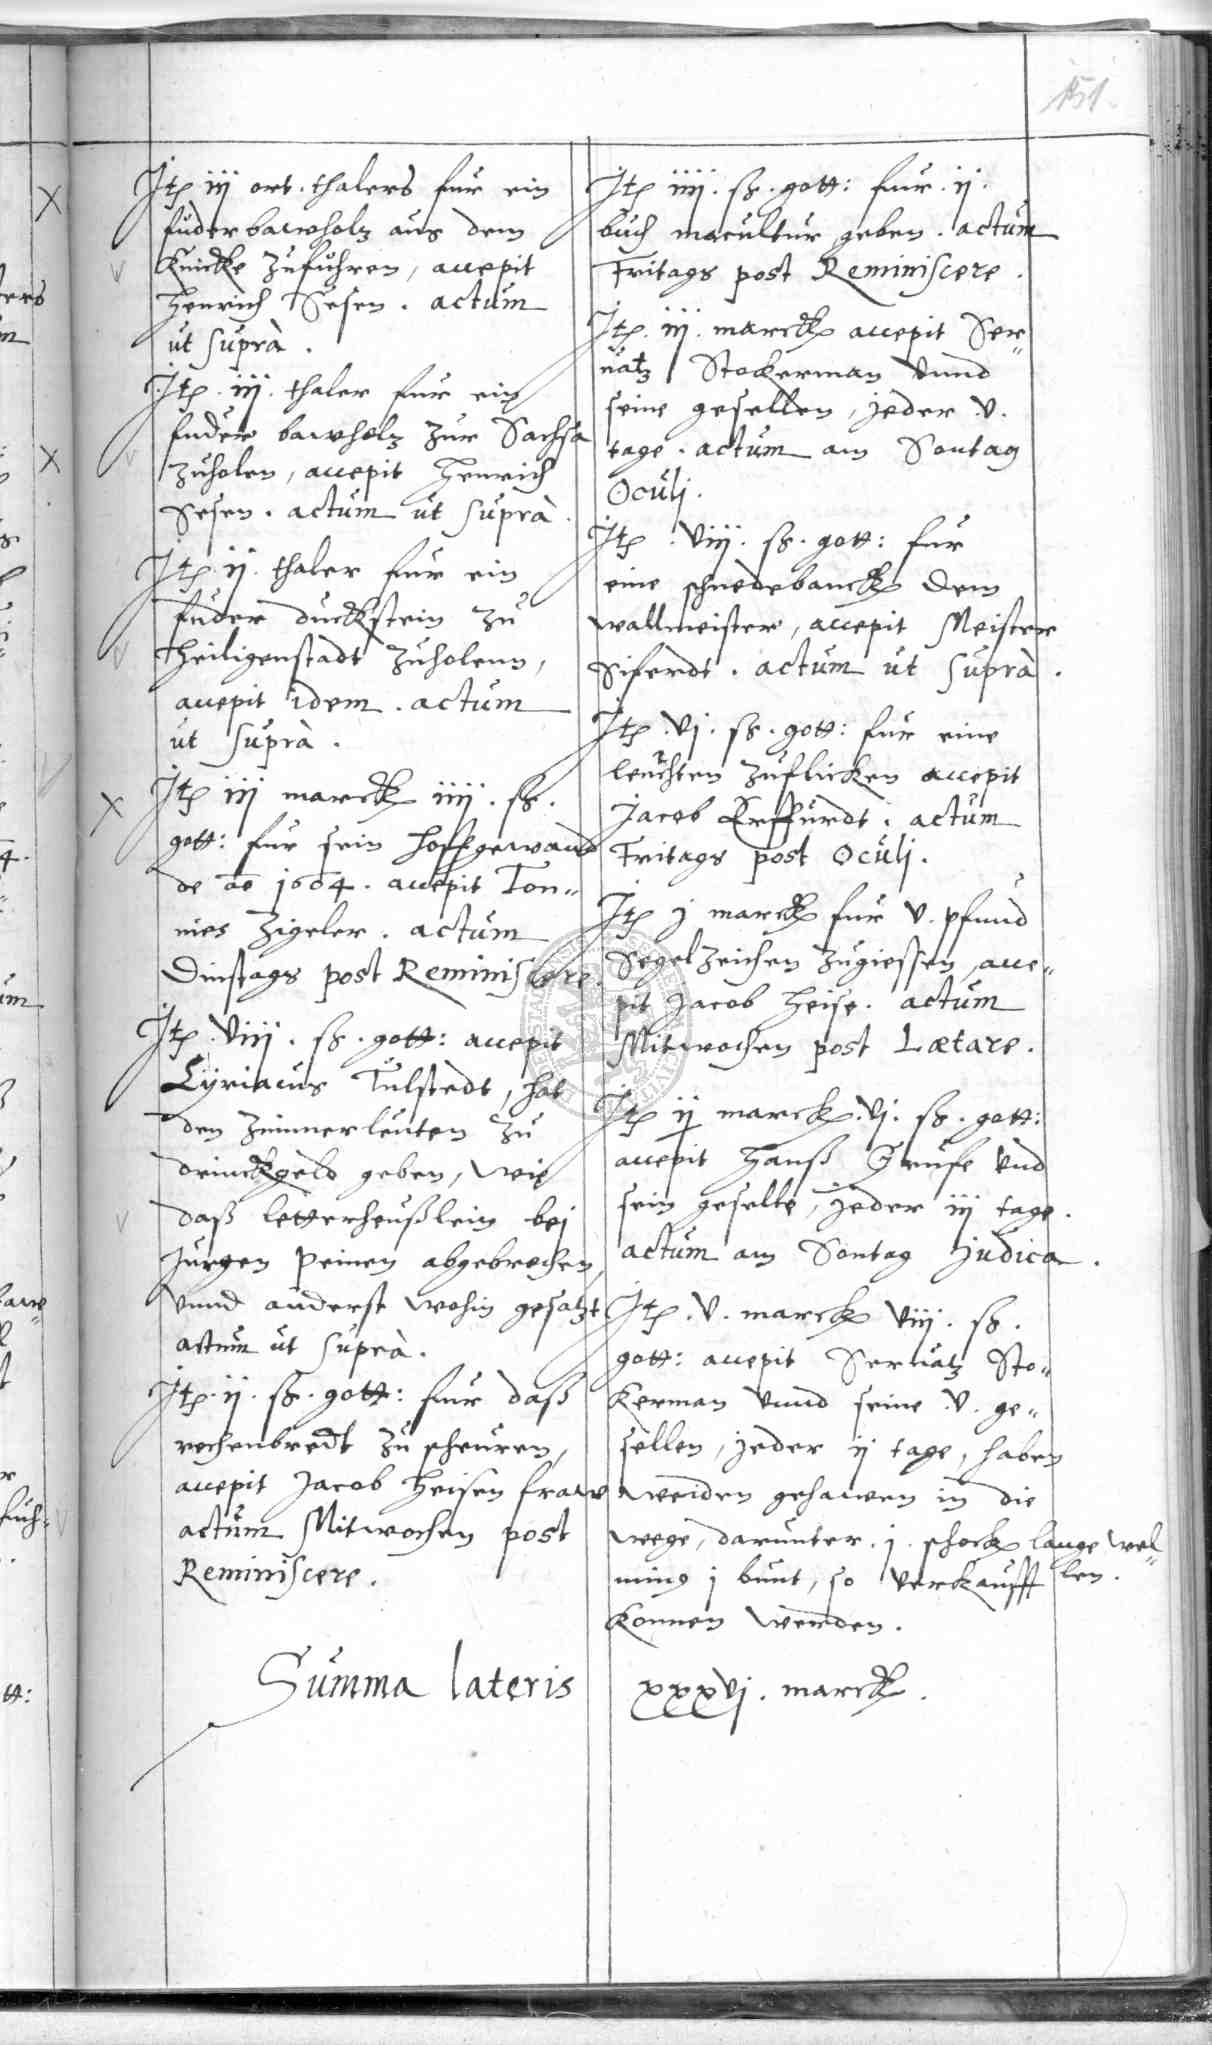 151.
Itp iij ort. thalers fur ein
fuder bawholz aus dem
Knicke zufuhren, accepit
Henrich Sesen. actum
ut suprà.
Itp. iij. thaler fur ein
fuder bawholz zur Sachsa
zuholen, accepit Henrich
Sesen. actum ut suprà.
Itp. ij. thaler fur ein
fuder duckstein zu
Heiligenstadt zuholenn,
accepit idem. actum
ut suprà.
Itp iij marck iiij. ß.
gott: fur sein hoffgewand
de ao 1604. accepit Ton„
nies Zigeler. actum
Dinstags post Reminiscere.
Itp. viij. ß. gott: accepit
Cyriacus Tulstedt, hat
den Zimmerleuten zu
drinckgeld geben, wie
daß letterheußlein bej
Jurgen Peinen abgebrochen,
vnnd anderst wohin gesatzt
actum ut suprà.
Itp. ij. ß. gott: fur daß
rechenbredt zu scheuren,
accepit Jacob Heisen fraw
actum Mitwochen post
Reminiscere.
Itp iiij. ß. gott: fur. ij.
buch macultur geben. actum
Fritags post Reminiscere.
Itp. iij. marck accepit Ser„
uatz Stockerman vnnd
seine gesellen, jeder v.
tage. actum am Sontag
Oculj.
Itp. viij. ß. gott: fur
eine schnedebanck dem
wallmeister, accepit Meister
Siferdt. actum ut suprà.
Itp. vj. ß. gott: fur eine
leuchten zuflicken accepit
Jacob Erffurdt. actum
Fritags post Oculj.
Itp j marck fur v. pfund
Segelzeichen zugiessen, acce„
pit Jacob Heise. actum
Mitwochen post Lætare.
Itp ij marck. vj. ß. gott:
accepit Hanß Grufe vnd
sein geselle, jeder iij tage.
actum am Sontag Judica.
Itp. v. marck viij. ß.
gott: accepit Seruatz Sto„
kerman vnnd seine. v. ge„
sellen, jeder ij tage, haben
weiden gehawen in die
wege, darunter. j. schock lange wel„
len.
ming j bunt, so verkaufft
konnen werden.
Summa lateris xxxvj. marck.